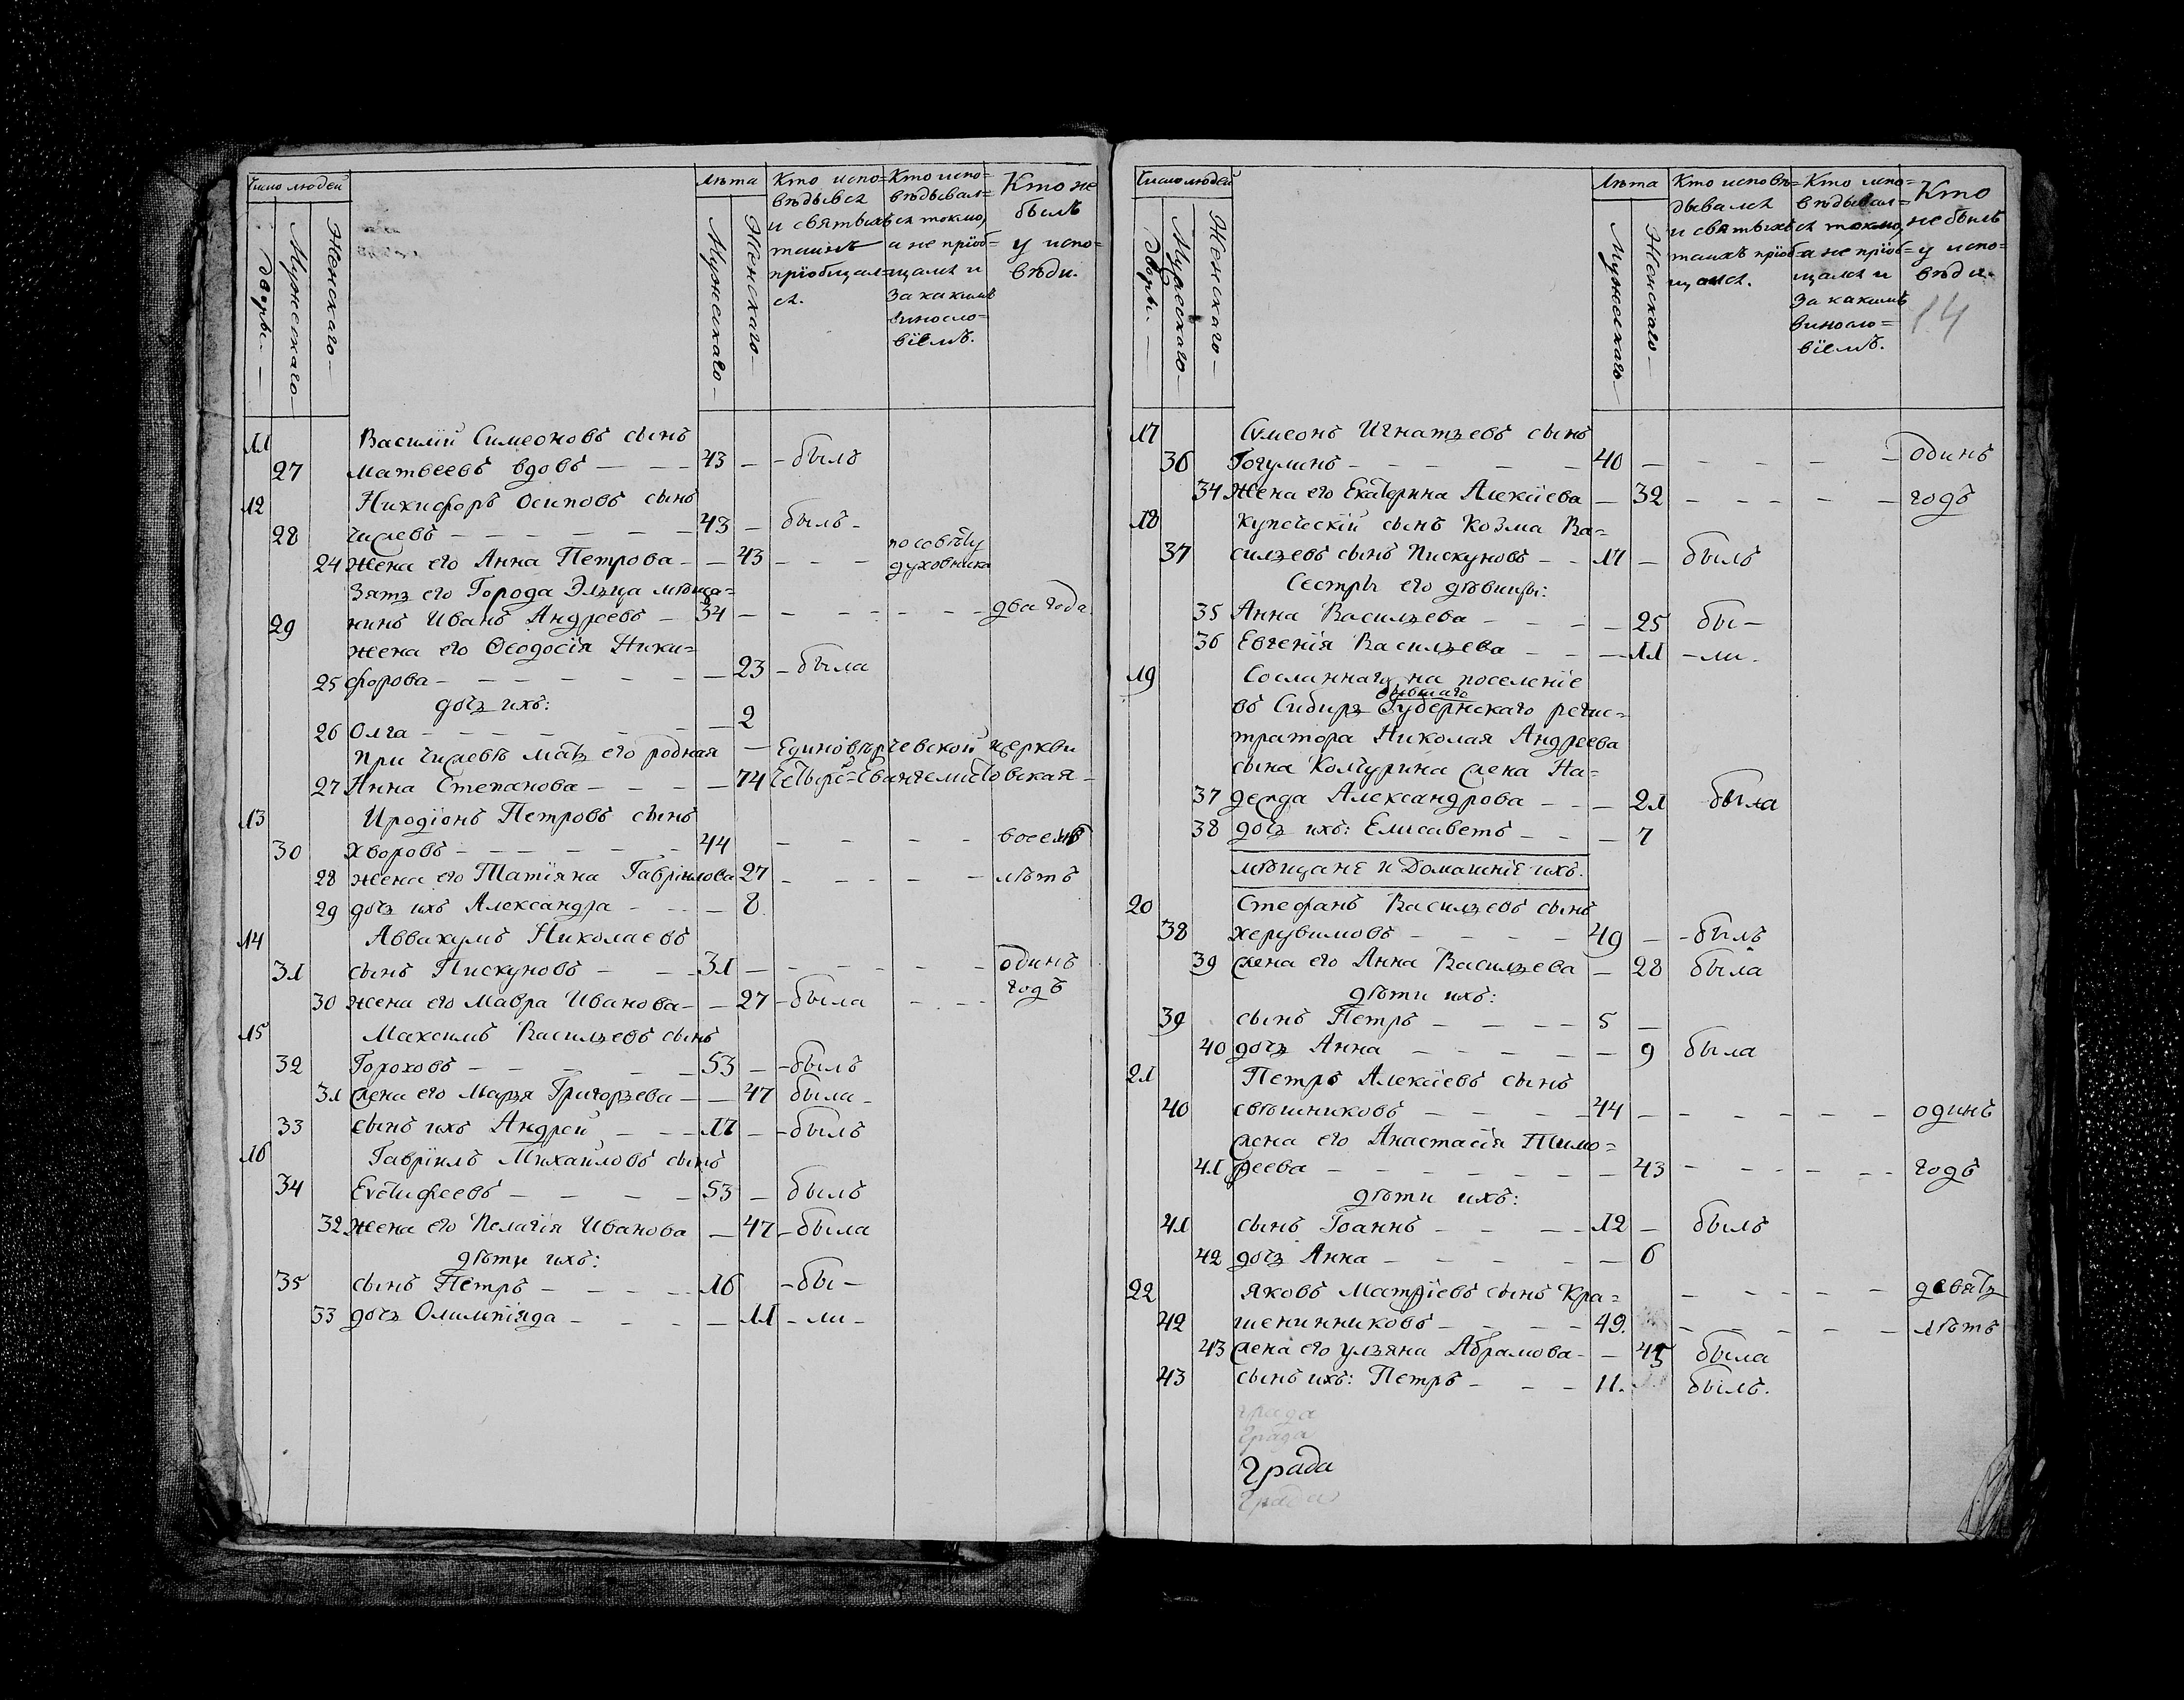 Число людей
Дворы.
Мужескаго
Женскаго
Лѣта
Мужескаго
Женскаго
Кто испо=
вѣдывся
и святыхъ
таинъ
пріобщал=
ся.
Кто испо=
вѣдывал=
ся токмо,
а не пріоб=
щался и
за какимъ
виносло=
віемъ.
Кто не
былъ
у испо=
вѣди.
11 Василій Симеоновъ сынъ
27 Матвеевъ вдовъ — — — 43 — — былъ
12 Никифоръ Осиповъ сынъ
28 — — — — — — 43 — былъ —
24 жена его Анна Петрова — — 43 — — — по совѣту духовника
Зять его Города Эльца мѣща=
29 нинъ Иванъ Андреевъ — 34 — — — — — — — два года.
жена его Ѳеодосія Ники=
25 форова — — — — — — — 23 — была
дочь ихъ:
26 Олга — — — — — — — 2
При мать его родная — Единовѣрчевской церкви
27 Анна Степанова — — — — 74 Четыре=Евангелистовская —
13 Иродіонъ Петровъ сынъ
30 Хворовъ — — — — — — 44 — — — — восемь
28 жена его Татіяна Гавріилова 27 — — — — — лѣтъ
29 дочь ихъ Александра — — — — 8.
14 Аввакумъ Николаевъ
31 сынъ Пискуновъ — — — 31 — — — — — — одинъ
30 жена его Мавра Иванова — — 27 — была — — — годъ
15 Максимъ Васильевъ сынъ
32 Гороховъ — — — — — 53 — — былъ
31 жена его Марья Григорьева — — 47 была —
33 сынъ ихъ Андрей — — — 17 — — былъ
16 Гавріилъ Михайловъ сынъ
34 Евстифеевъ — — — — 53 — былъ
32 жена его Пелагія Иванова — 47 — была
дѣти ихъ:
35 сынъ Петръ — — — — — 16 — бы —
33 дочь Олимпіяда — — — — 11 — ли —
Число людей
Дворы.
Мужескаго
Женскаго
Лѣта
Мужескаго
Женскаго
Кто исповѣ=
дывался
и святыхъ
таинъ пріоб=
щался.
Кто испо=
вѣдывал=
ся токмо,
а не пріоб=
щался и
за какимъ
виносло=
віемъ.
Кто
не былъ
у испо=
вѣди.
14
17 Сѵмеонъ Игнатьевъ сынъ
36 Гогулинъ — — — — — 40 — — — — — одинъ
34 жена его Екатерина Алексіева — 32 — — — — — годъ
18 Купеческій сынъ Козма Ва=
37 сильевъ сынъ Пискуновъ — — 17 — былъ
Сестры его дѣвицы:
35 Анна Васильева — — — — 25 бы —
36 Евгенія Васильева — — — 11 — ли.
19 Сосланнаго на поселеніе
бывшаго
въ Сибирь Губернскаго регис=
тратора Николая Андреева
сына Комурина жена На=
37 дежда Александрова — — — 21 была
38 дочь ихъ: Елисаветъ — — — 7
мѣщане и Домашніе ихъ.
20 Стефанъ Васильевъ сынъ
38 херувимовъ — — — — 49 — — былъ
39 жена его Анна Васильева — 28 была
дѣти ихъ:
39 сынъ Петръ — — — — 5 —
40 дочь Анна — — — — — — 9 была
21 Петръ Алексіевъ сынъ
40 свѣшниковъ — — — — 44 — — — — — — одинъ
жена его Анастасія Тимо=
41 феева — — — — — — — 43 — — — — — — годъ
дѣти ихъ:
41 сынъ Іоаннъ — — — — 12 — былъ
42 дочь Анна — — — — — — 6
22 Яковъ Матфіевъ сынъ Кра= — — — — — девять
42 шенинниковъ — — — — 49. — — — — — лѣтъ
43 жена его Ульяна Абрамова — — 45 была
43 сынъ ихъ: Петръ — — — 11. былъ.
града
града
Града
Града